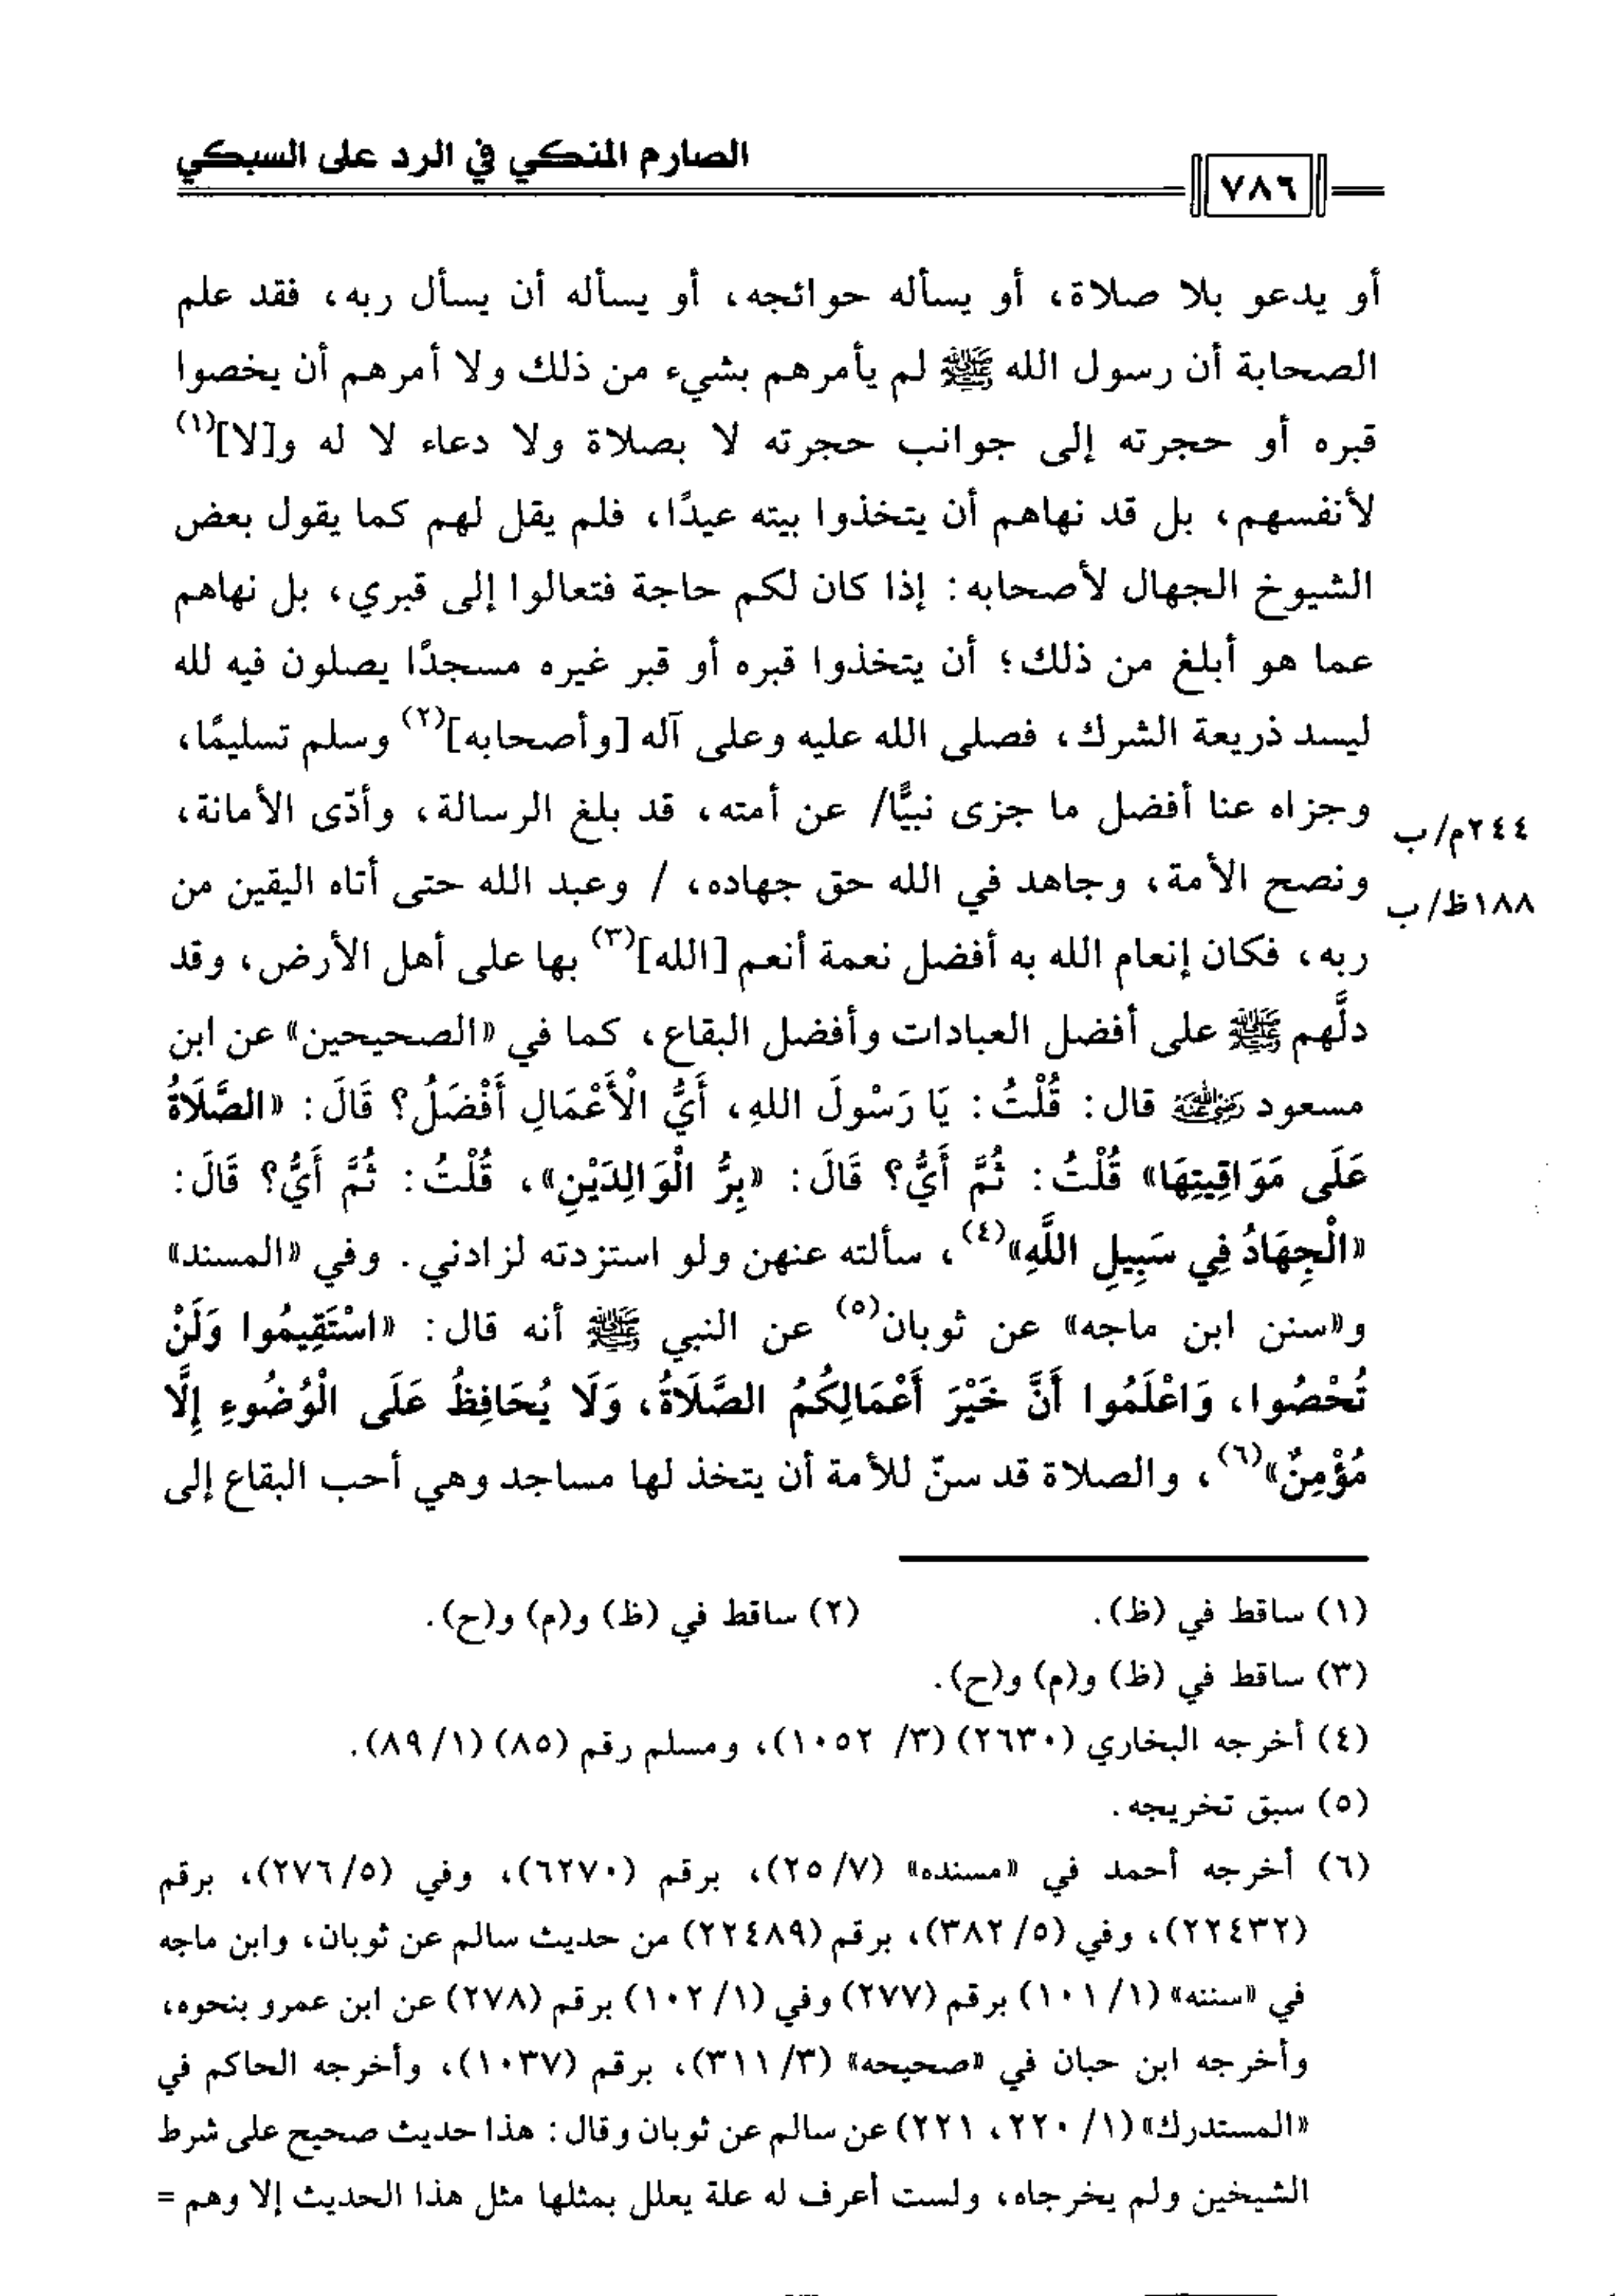 الصارم المنكي في الرد على السبكي
٧٨٦
أو يدعو بلا صلاة، أو يسأله حوائجه، أو يسأله أن يسأل ربه، فقد علم
الصحابة أن رسول الله ﷺ لم يأمرهم بشيء من ذلك ولا أمرهم أن يخصوا
قبره أو حجرته إلى جوانب حجرته لا بصلاة ولا دعاء لا له و[لا](١)
لأنفسهم، بل قد نهاهم أن يتخذوا بيته عيدًا، فلم يقل لهم كما يقول بعض
الشيوخ الجهال لأصحابه: إذا كان لكم حاجة فتعالوا إلى قبري، بل نهاهم
عما هو أبلغ من ذلك؛ أن يتخذوا قبره أو قبر غيره مسجدًا يصلون فيه لله
ليسد ذريعة الشرك، فصلى الله عليه وعلى آله [وأصحابه](٢) وسلم تسليمًا،
وجزاه عنا أفضل ما جزى نبيًّا/ عن أمته، قد بلغ الرسالة، وأدّى الأمانة،
٢٤٤م/ب
ونصح الأمة، وجاهد في الله حق جهاده، / وعبد الله حتى أتاه اليقين من
١٨٨ظ/ب
ربه، فكان إنعام الله به أفضل نعمة أنعم [الله](٣) بها على أهل الأرض، وقد
دلَّهم ﷺ على أفضل العبادات وأفضل البقاع، كما في «الصحيحين» عن ابن
مسعود رضي الله عنه قال: قُلْتُ: يَا رَسُولَ اللهِ، أَيُّ الْأَعْمَالِ أَفْضَلُ؟ قَالَ: «الصَّلَاةُ
عَلَى مَوَاقِيتِهَا» قُلْتُ: ثُمَّ أَيُّ؟ قَالَ: «بِرُّ الْوَالِدَيْنِ»، قُلْتُ: ثُمَّ أَيُّ؟ قَالَ:
«الْجِهَادُ فِي سَبِيلِ اللَّهِ»(٤)، سألته عنهن ولو استزدته لزادني. وفي «المسند»
و«سنن ابن ماجه» عن ثوبان(٥) عن النبي ﷺ أنه قال: «اسْتَقِيمُوا وَلَنْ
تُحْصُوا، وَاعْلَمُوا أَنَّ خَيْرَ أَعْمَالِكُمُ الصَّلَاةُ، وَلَا يُحَافِظُ عَلَى الْوُضُوءِ إِلَّا
مُؤْمِنٌ»(٦)، والصلاة قد سنّ للأمة أن يتخذ لها مساجد وهي أحب البقاع إلى
(١) ساقط في (ظ). (٢) ساقط في (ظ) و(م) و(ح).
(٣) ساقط في (ظ) و(م) و(ح).
(٤) أخرجه البخاري (٢٦٣٠) (٣/ ١٠٥٢)، ومسلم رقم (٨٥) (١/ ٨٩).
(٥) سبق تخريجه.
(٦) أخرجه أحمد في «مسنده» (٧/ ٢٥)، برقم (٦٢٧٠)، وفي (٥/ ٢٧٦)، برقم
(٢٢٤٣٢)، وفي (٥/ ٣٨٢)، برقم (٢٢٤٨٩) من حديث سالم عن ثوبان، وابن ماجه
في «سننه» (١/ ١٠١) برقم (٢٧٧) وفي (١/ ١٠٢) برقم (٢٧٨) عن ابن عمرو بنحوه،
وأخرجه ابن حبان في «صحيحه» (٣/ ٣١١)، برقم (١٠٣٧)، وأخرجه الحاكم في
«المستدرك» (١/ ٢٢٠، ٢٢١) عن سالم عن ثوبان وقال: هذا حديث صحيح على شرط
الشيخين ولم يخرجاه، ولست أعرف له علة يعلل بمثلها مثل هذا الحديث إلا وهم =